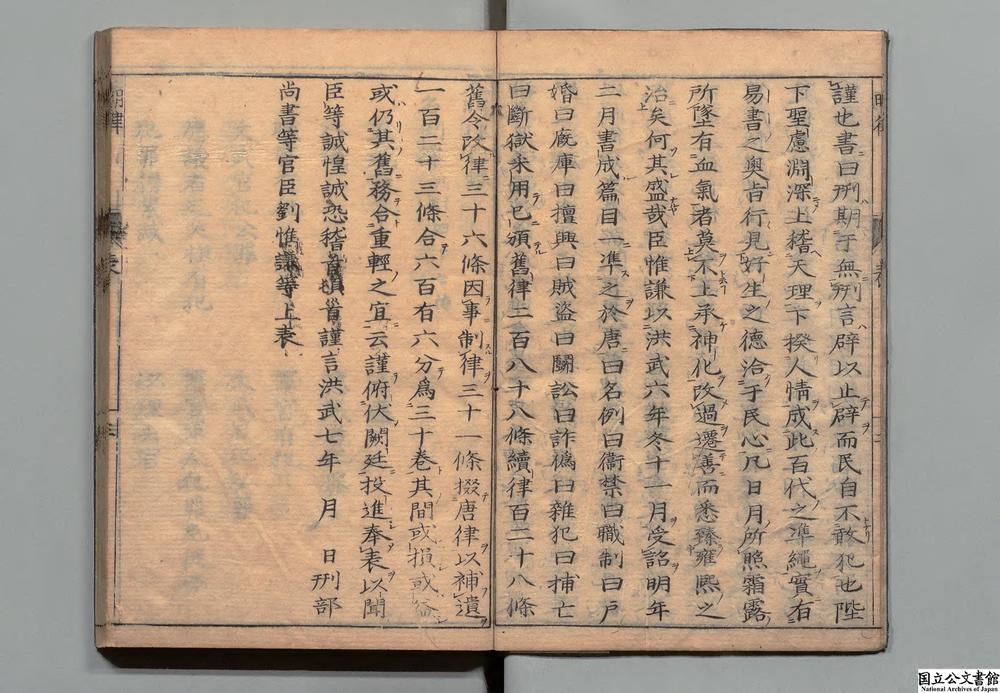 謹也書曰刑期于無刑言辟以止辟而民自不敢犯也陛
下聖慮淵深上稽天理下揆人情成此百代之準繩實有
易書之奥旨行見好生之德洽于民心凡日月所照霜露
所墜有血氣者莫不上承神化改過遷善而悉臻雍熙之
治矣何其盛哉臣惟謙以洪武六年冬十一月受詔明年
二月書成篇目一準之於唐曰名例曰衞禁曰職制曰戶
婚曰廐庫曰擅興曰賊盜曰鬬訟曰詐僞曰雜犯曰捕亡
曰斷獄采用已頒舊律二百八十八條續律百二十八條
舊令改律三十六條因事制律三十一條掇唐律以補遺
一百二十三條合六百有六分爲三十卷其間或損或益
或仍其舊務合重輕之宜云謹俯伏闕廷投進奉表以聞
臣等誠惶誠恐稽首頓首謹言洪武七年 月 日刑部
尚書等官臣劉惟謙等上表
明律
表
国立公文書館
National Archives of Japan